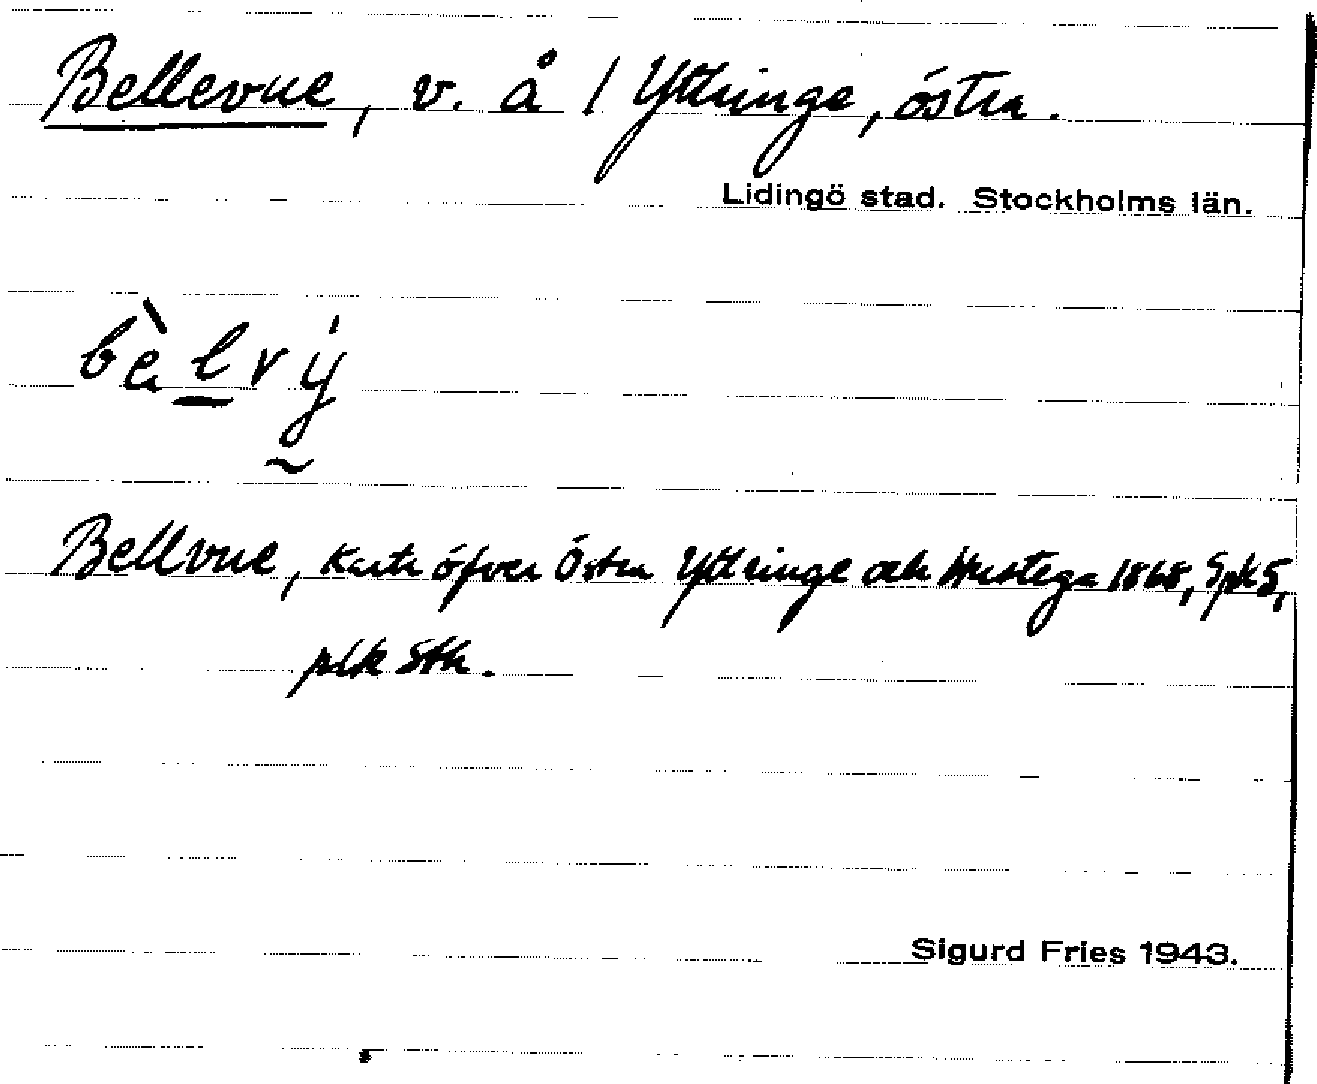 Bellevue, v. å / Yttringe, östra.
Lidingö stad. Stockholms län.
bèlvy̍
Bellvue, Karta öfver Östra Yttringe och Hustega 1868, Spk 5,
plk Sth.
Sigurd Fries 1943.